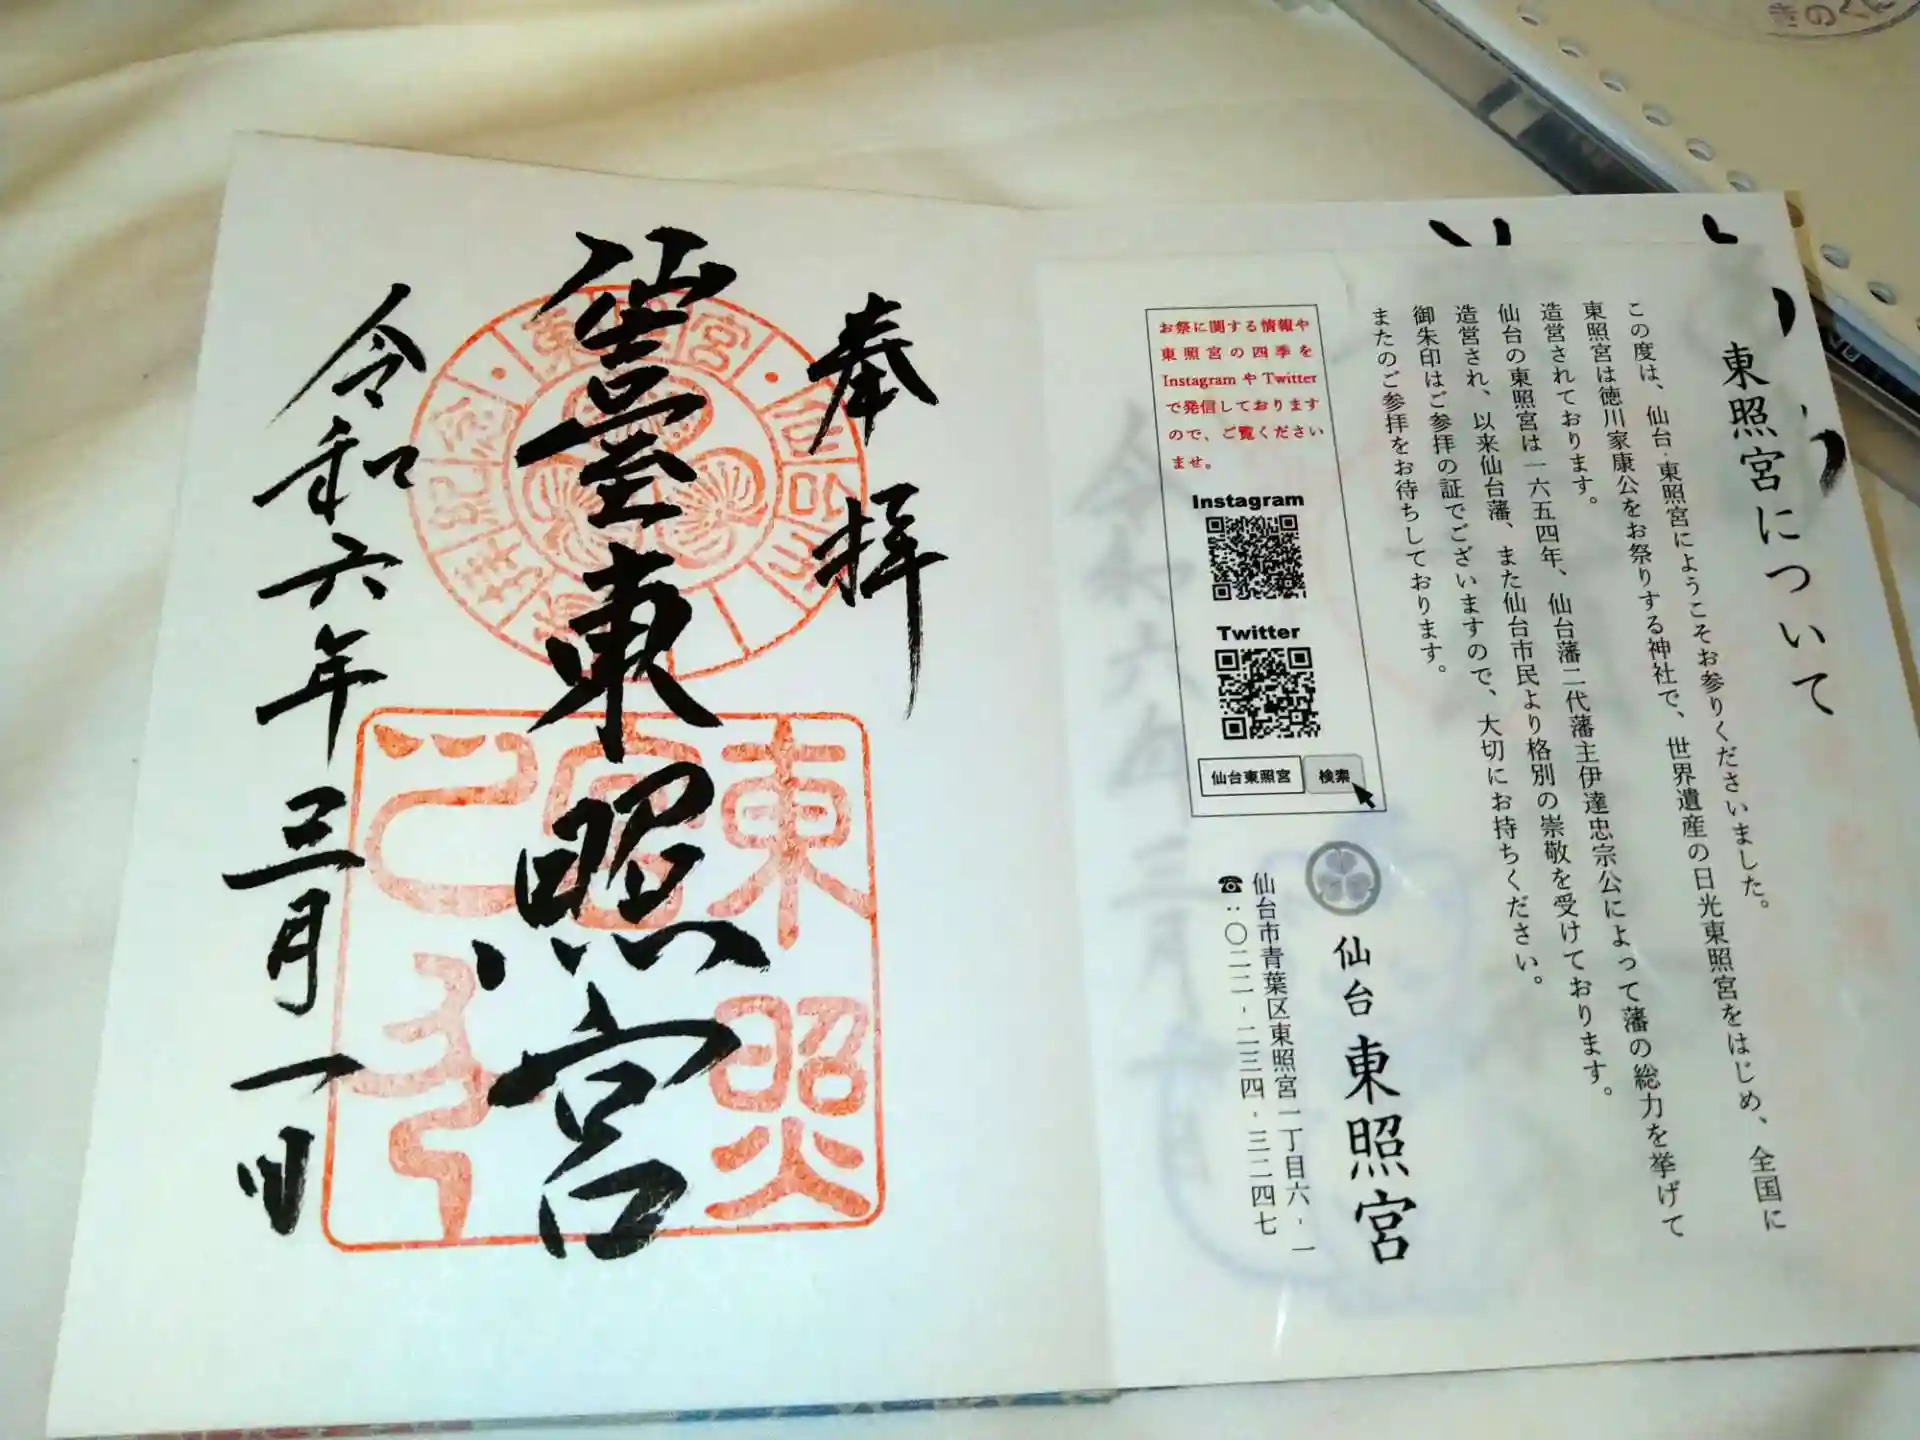 奉拝
仙臺東照宮
令和六年三月一日
東照宮
東照宮について
この度は、仙台・東照宮にようこそお参りくださいました。
東照宮は徳川家康公をお祭りする神社で、世界遺産の日光東照宮をはじめ、全国に
造営されております。
仙台の東照宮は一六五四年、仙台藩二代藩主伊達忠宗公によって藩の総力を挙げて
造営され、以来仙台藩、また仙台市民より格別の崇敬を受けております。
御朱印はご参拝の証でございますので、大切にお持ちください。
またのご参拝をお待ちしております。
お祭に関する情報や
東照宮の四季を
InstagramやTwitter
で発信しております
ので、ご覧ください
ませ。
Instagram
Twitter
仙台東照宮 検索
仙台 東照宮
仙台市青葉区東照宮一丁目六‐一
☎:〇二二‐二三四‐三二四七